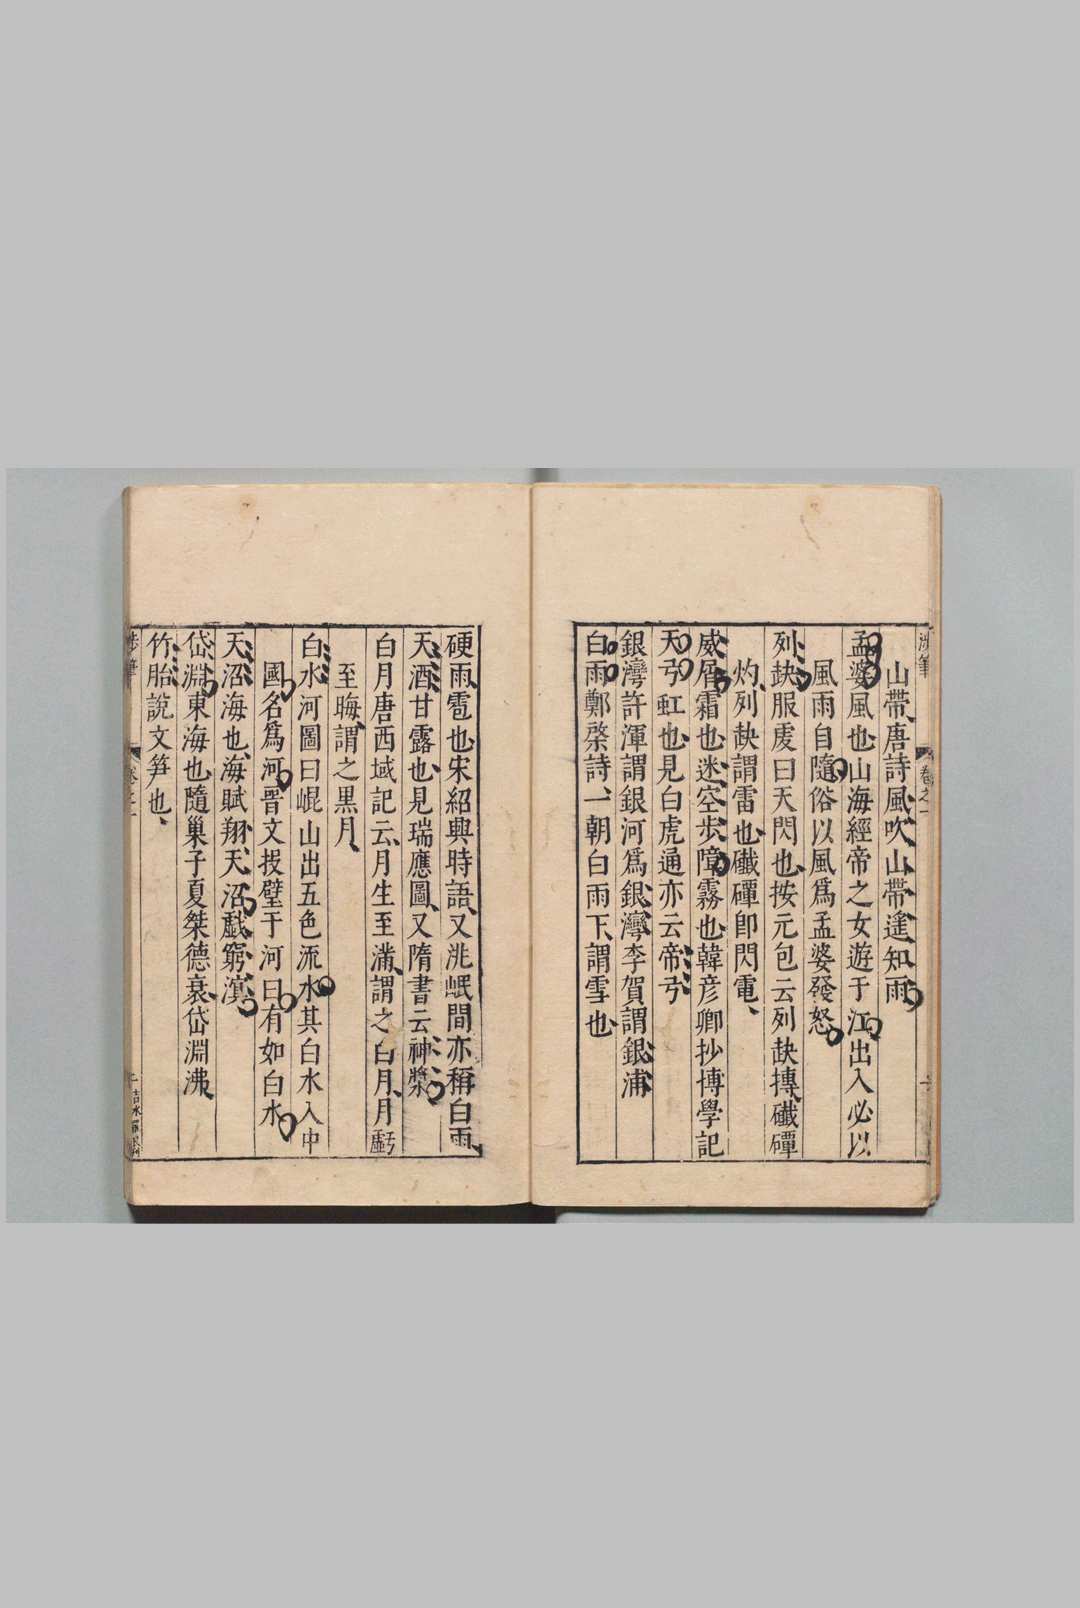 山帶唐詩風吹山帶遙知雨
孟婆風也山海經帝之女遊于江出入必以
風雨自隨俗以風爲孟婆發怒
列缺服虔曰天閃也按元包云列缺摶礮磹
灼列缺謂雷也礮磹卽閃電
威屑霜也迷空步障霧也韓彦卿抄摶學記
天弓虹也見白虎通亦云帝弓
銀灣許渾謂銀河爲銀灣李賀謂銀浦
白雨鄭棨詩一朝白雨下謂雪也
硬雨雹也宋紹興時語又洮岷間亦稱白雨
天酒甘露也見瑞應圖又隋書云神漿
白月唐西域記云月生至滿謂之白月月虧
至晦謂之黑月
白水河圖曰崐山出五色流水其白水入中
國名爲河晋文投璧于河曰有如白水
天沼海也海賦翔天沼戱窮溟
岱淵東海也隨巢子夏桀德衰岱淵沸
竹胎說文笋也
卷之一